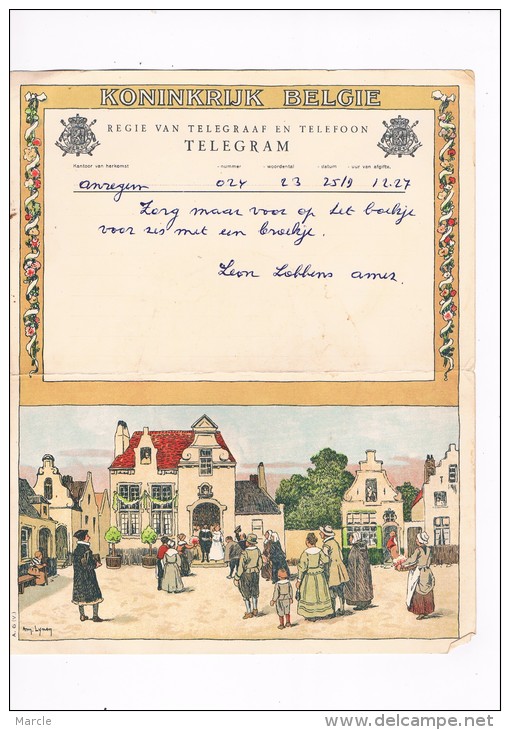 KONINKRIJK BELGIE
REGIE VAN TELEGRAAF EN TELEFOON
TELEGRAM
Kantoor van herkomst - nummer - woordental - datum - uur van afgifte.
Anzegem 024 23 25/9 12.27
Zorg maar voor op het boekje
voor zes met een broekje.
Leon Lobbens
Amy. Lynen
Marcle
www.delcampe.net